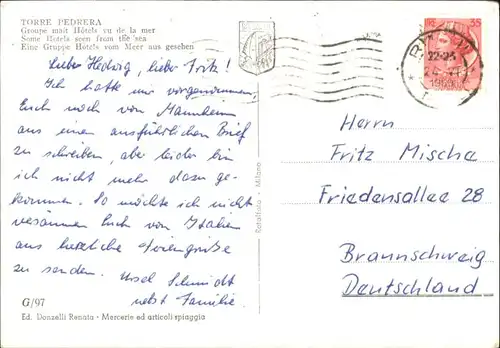 TORRE PEDRERA
Groupe mait Hôtels vu de la mer
Some Hotels seen from the sea
Eine Gruppe Hotels vom Meer aus gesehen
Lieber Hedwig, lieber Fritz!
Ich hatte mir vorgenommen
Euch noch von Mannheim
aus einen ausführlichen Brief
zu schreiben, aber leider bin
ich nicht mehr dazu ge-
kommen. So möchte ich nicht
versäumen Euch von Italien
aus herzliche Feriengrüße
zu senden. Ursel Schmidt
nebst Familie.
G/97
Ed. Donzelli Renata - Mercerie ed articoli spiaggia
Rotalfoto - Milano
35
22-23
1969
Herrn
Fritz Mische
Friedensallee 28
Braunschweig
Deutschland